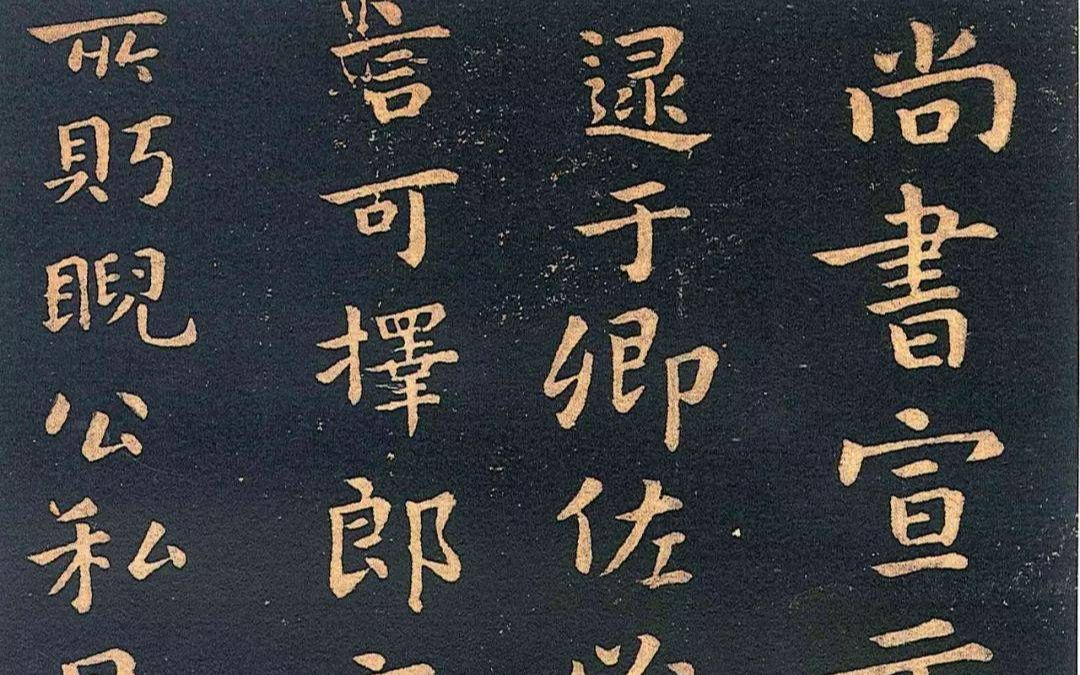 尚書宣
逮于卿佐
言可擇郎
所盱睨公私